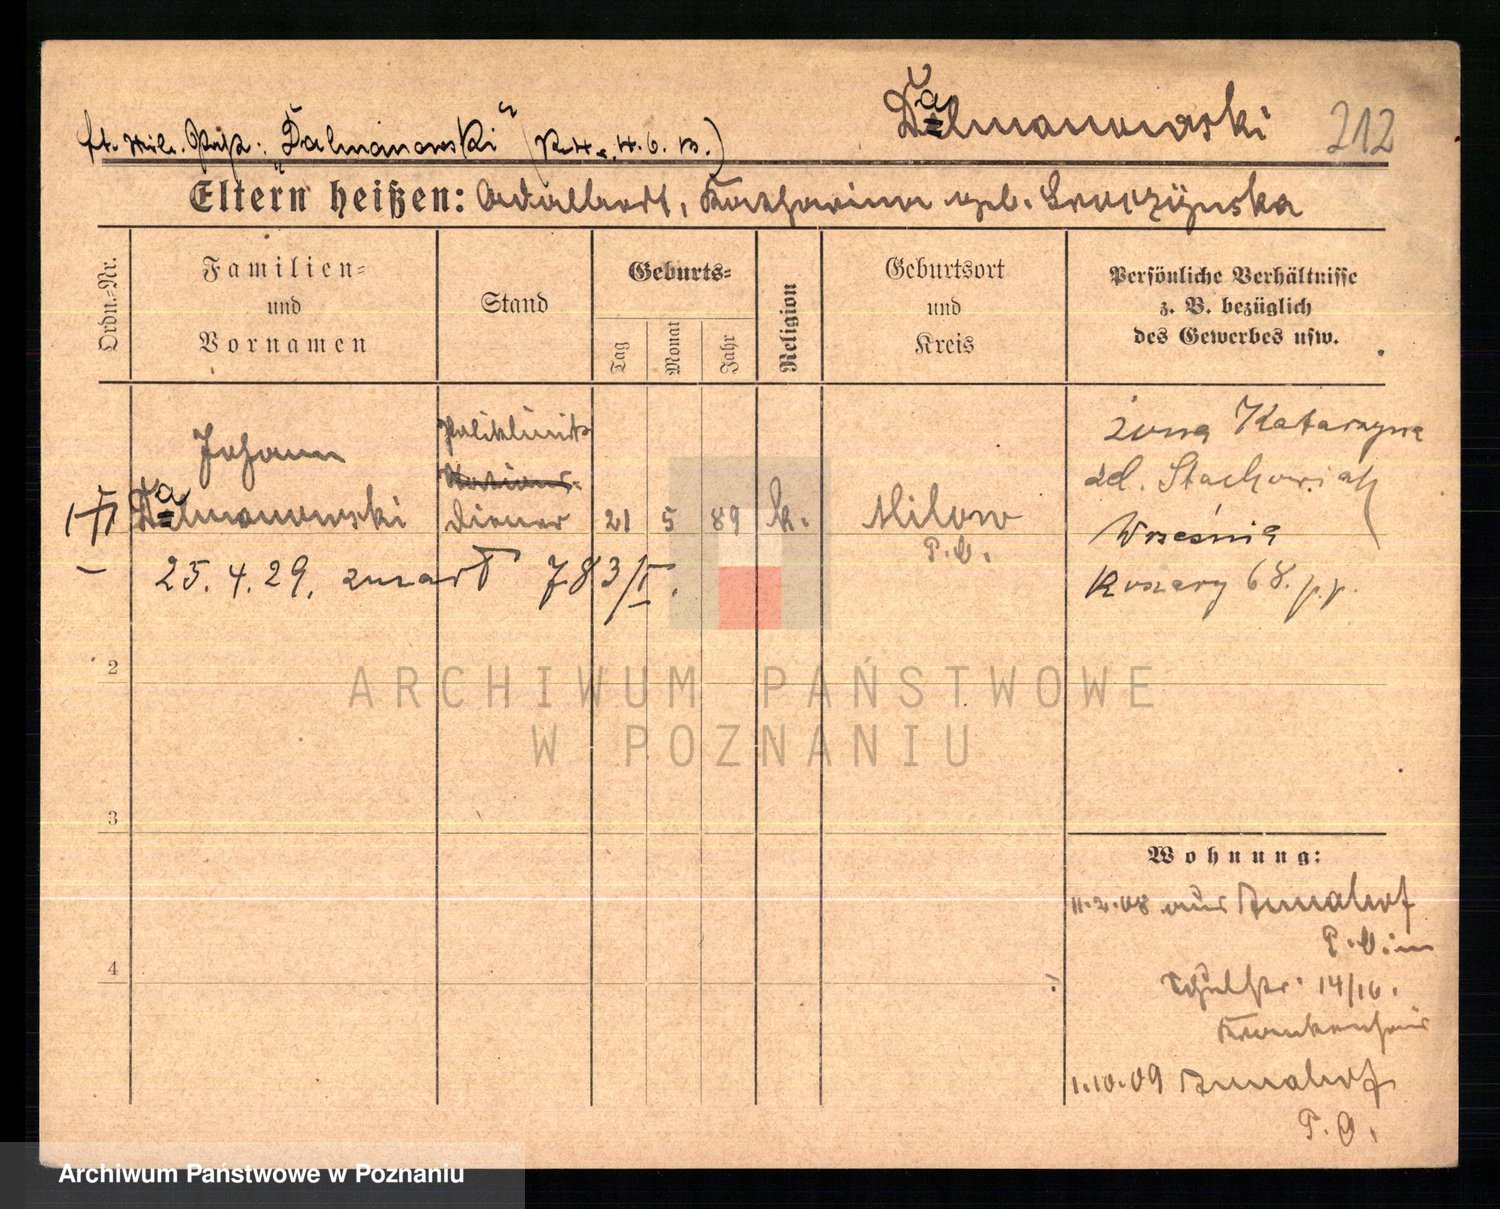 Dalmanowski 212
lt. Mil. Paß: "Dalmanowski"
Eltern heißen: Adalbert, Katharina geb.
Ordn.-Nr.
Familien-
und
Vornamen
Stand
Geburts-
Tag
Monat
Jahr
Religion
Geburtsort
und
Kreis
Persönliche Verhältnisse
z. B. bezüglich
des Gewerbes usw.
Johann
Dalmanowski
Poliklinik
Diener
21 5 89 k.
Milow
P. O.
25. 4. 29. zmarł 783/II.
żona Katarzyna
Stachowiak
Września
Koszary 68. p.p.
2
3
4
Wohnung:
11.2.08 aus Annahof
P. O. in
Schulstr. 14/16.
Krankenhaus
1.10.09 Annahof
P. O.
ARCHIWUM PAŃSTWOWE
W POZNANIU
Archiwum Państwowe w Poznaniu